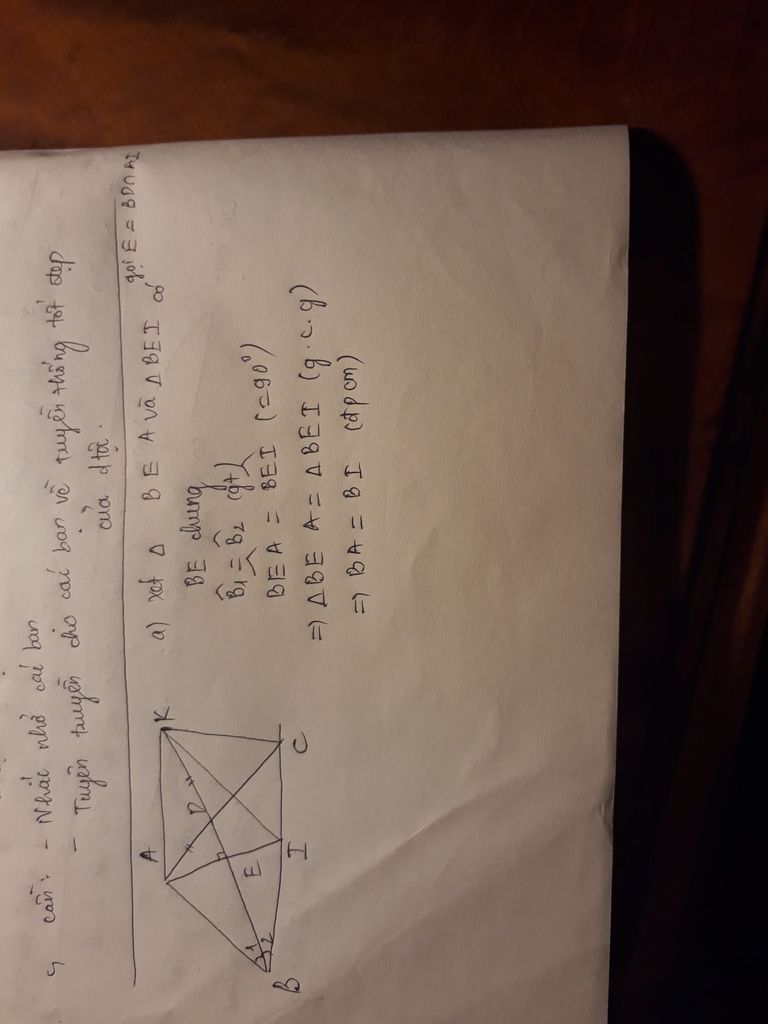 cần: - Nhắc nhở các bạn
- Tuyên truyền cho các bạn về truyền thống tốt đẹp
của dtộc.
gọi E = BD∩AI
a) xét Δ BEA và ΔBEI có
BE chung
B̂1 = B̂2 (gt)
BEA = BEI (=90°)
=) ΔBEA = ΔBEI (g.c.g)
=) BA = BI (đpcm)
A
K
D
E
B
1
2
I
C